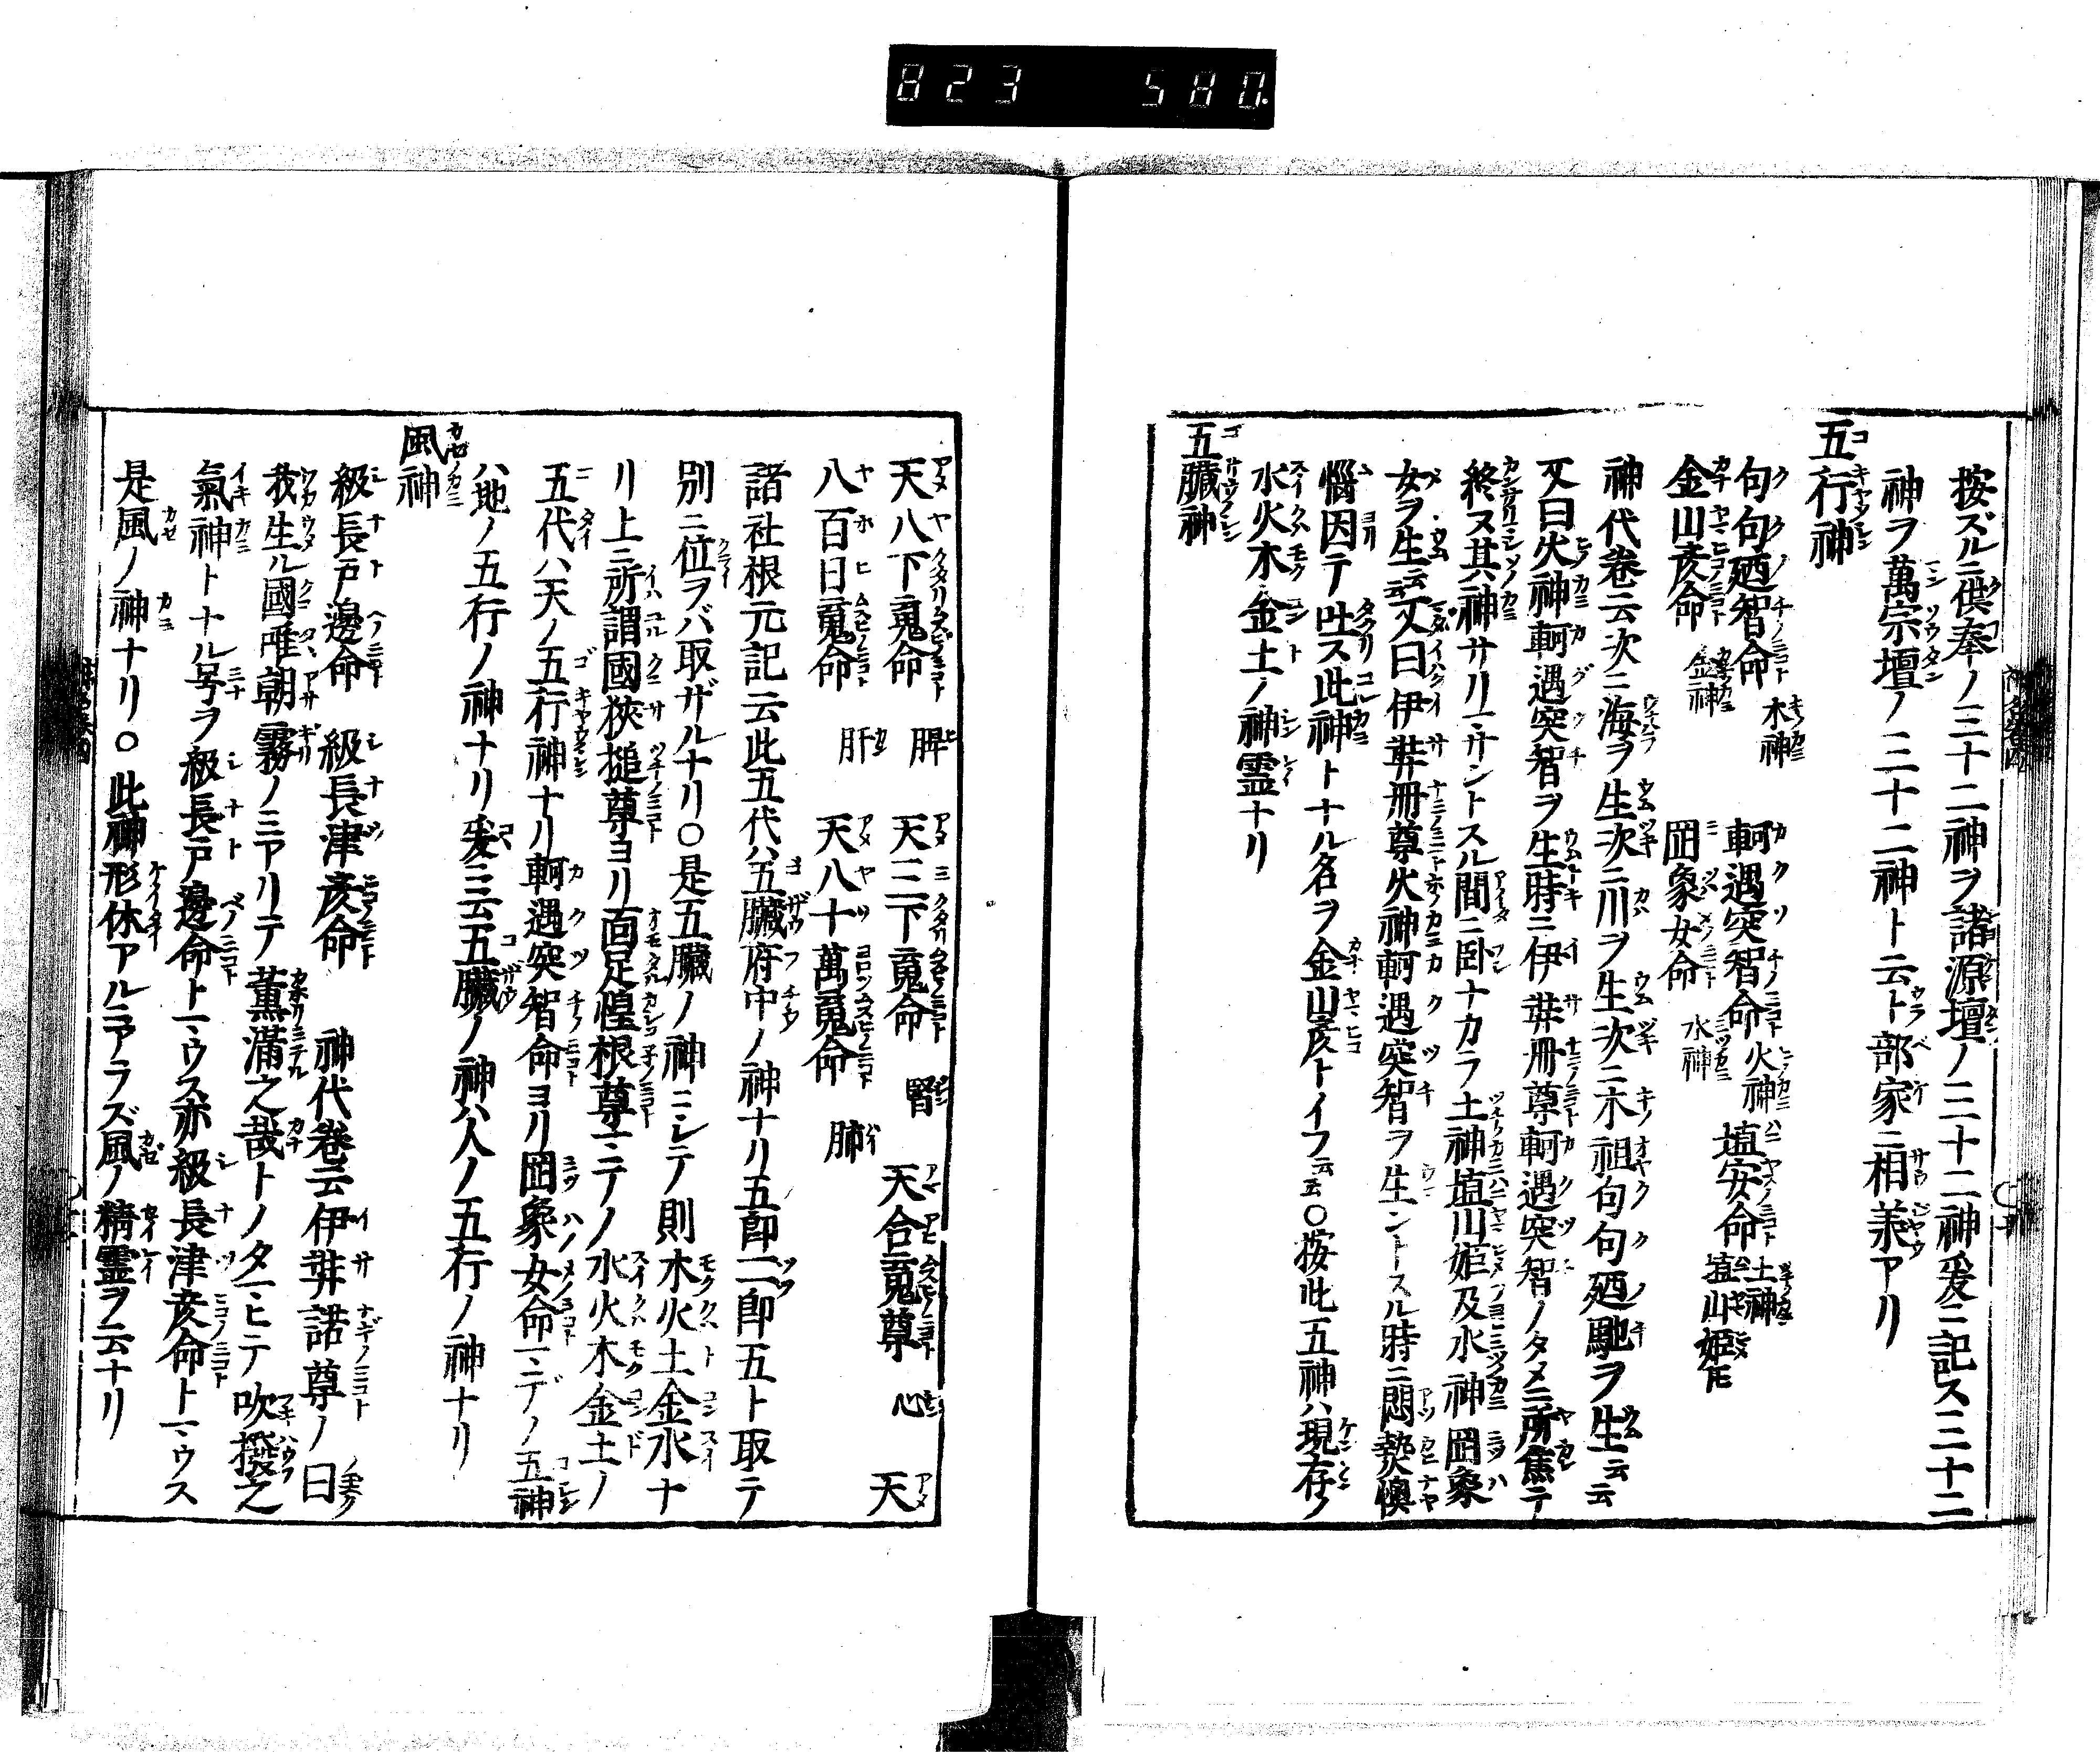 823 580.
按ズルニ供奉ノ三十二神ヲ諸源壇ノ三十二神爰ニ記ス三十二
神ヲ萬宗壇ノ三十二神ト云ト部家ニ相兼アリ
五行神
句句廼智命 木神 軻遇突智命 火神 埴安命 土神 埴山姫𪜈
金山彦命 金神 罔象女命 水神
神代卷云次ニ海ヲ生次ニ川ヲ生次ニ木祖句句廼馳ヲ生云云
又曰火神軻遇突智ヲ生時ニ伊弉冊尊軻遇突智ノタメニ所焦テ
終ス其神サリマサントスル間ニ臥ナカラ土神埴山姫及水神罔象
女ヲ生云云又曰伊弉冊尊火神軻遇突智ヲ生ントスル時ニ悶熱懊
惱因テ吐ス此神トナル名ヲ金山彦トイフ云云○按此五神ハ現存ノ
水火木金土ノ神霊ナリ
五臟神
天八下䰠命 脾 天三下䰠命 腎 天合䰠尊 心 天
八百日䰠命 肝 天八十萬䰠命 肺
諸社根元記云此五代ハ五臟府中ノ神ナリ五即一即五ト取テ
別ニ位ヲバ取ザルナリ○是五臟ノ神ニシテ則木火土金水ナ
リ上ニ所謂國狹槌尊ヨリ面足惶根尊マテノ水火木金土ノ
五代ハ天ノ五行神ナリ軻遇突智命ヨリ罔象女命マデノ五神
ハ地ノ五行ノ神ナリ爰ニ云五臟ノ神ハ人ノ五行ノ神ナリ
風神
級長戸邊命 級長津彦命 神代卷云伊弉諾尊ノ曰
我生ル國唯朝霧ノミアリテ薫滿之哉トノタマヒテ吹撥之
氣神トナル号ヲ級長戸邊命トマウス亦級長津彦命トマウス
是風ノ神ナリ○此神形体アルニアラズ風ノ精霊ヲ云ナリ